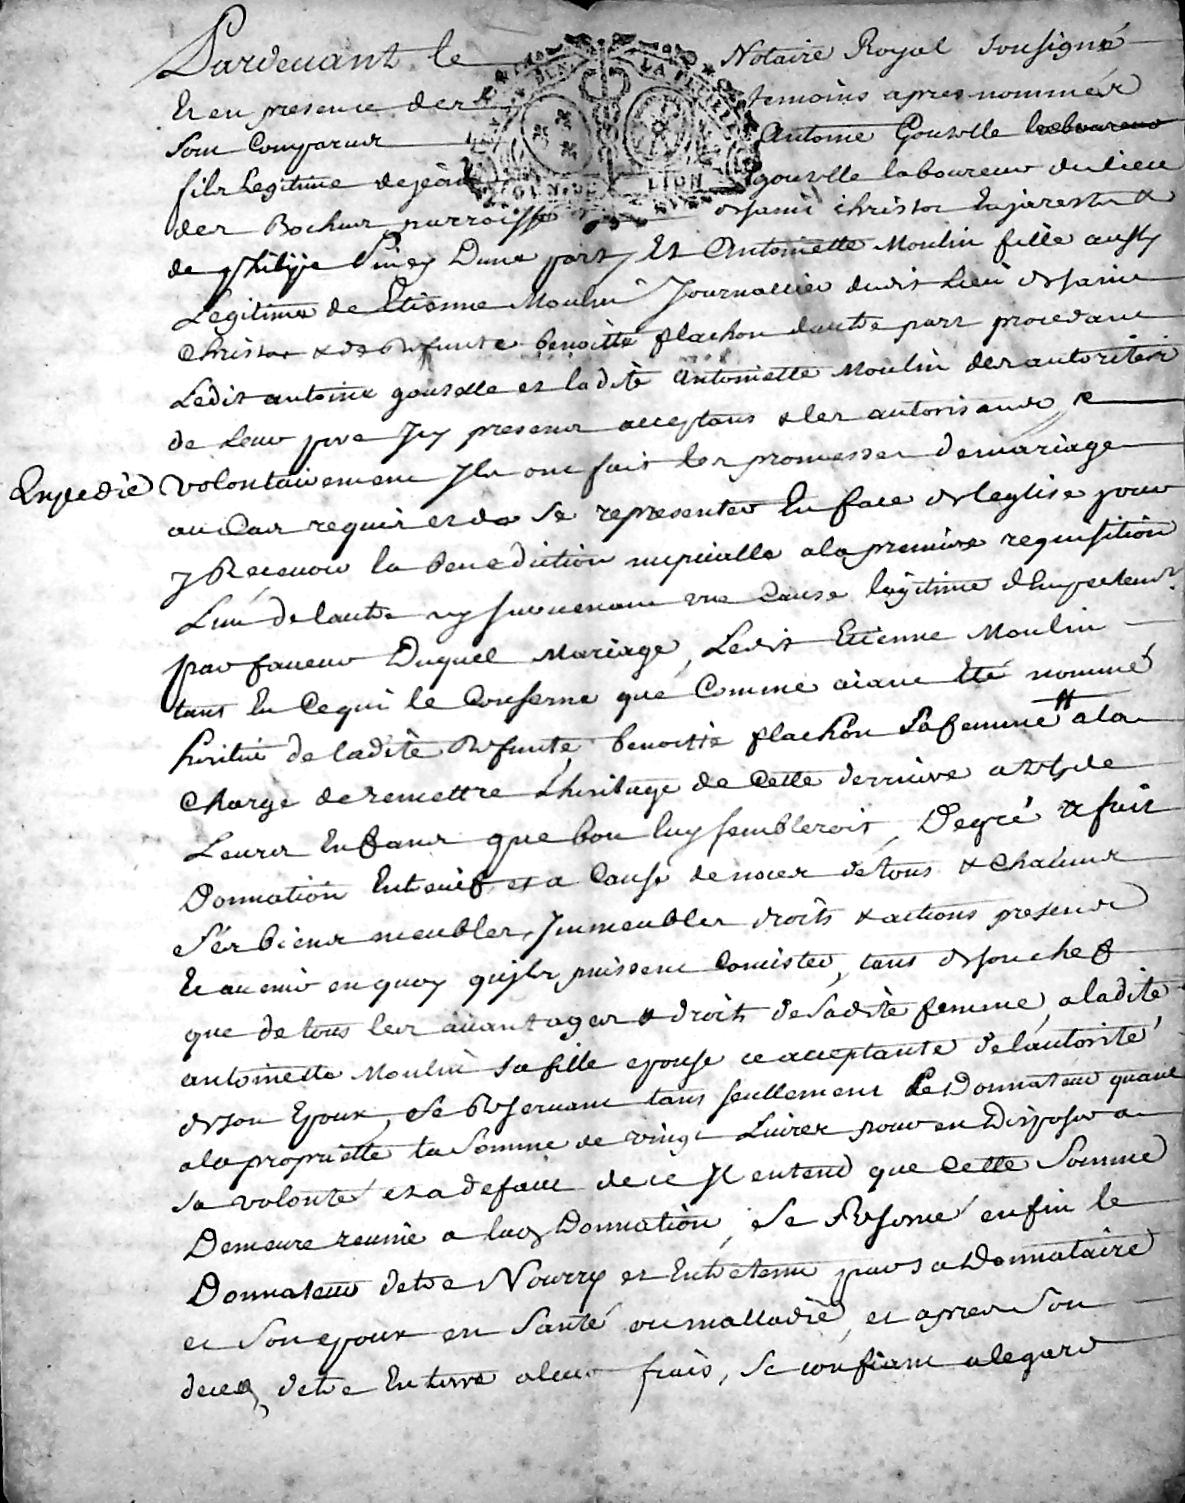 Pardevant le Notaire Royal soussigné
Et en presence des temoins apres nommés
sont Comparus Antoine Gouselle laboureur
fils Legitime de jean gouselle laboureur du lieu
des Rochus parroisse de saint christoc En jarest &
de philipje Piney Dune part, Et Antoinette Moulin fille aussy
Legitime de Etienne Moulin Journallier dudit Lieu de saint
christoc & de defunte benoitte flachon dautre part procedant
Ledit antoine gouselle et ladite antoinette Moulin des autorités
de Leur pere Icy presents acceptans & les autorisants, &
Expedié
volontairement Ils ont fait les promesses de mariage
au Cas requis et de se representer En face de leglise pour
y Recevoir la benediction nuptialle a la premiere requisition
Lun de lautre ny survenant une Cause legitime dEmpechement
par faveur Duquel Mariage, Ledit Etienne Moulin
tant En ce qui le Conserne que Comme aiant Eté nommé
heritié de ladite defunte benoitte flachon sa femme a la
Charge de remettre Lheritage de Cette derniere a
Leurs Enfans que bon luy sembleroit, De gré a fait
Donnation Entre vifs et a Cause de noces de tous & chacuns
ses biens meubles, Immeubles droits & actions presents
Et avenir en quoy quils puissent Consister, tant de son chef
que de tous les avantages & droits de sadite femme, a ladite
antoinette Moulin sa fille epouse ce acceptante de lautorité
de son Epoux, se Reservant tant seullement Le Donnateur quant
a la proprietté la Somme de vingt Livres pour en Disposer a
sa volonté et a defaut de ce Il entend que Cette Somme
Demeure reunie a lad Donnation, se Reservé enfin le
Donnateur detre Nourry et Entretenu par sa Donnataire
et Son epoux en Santé ou malladie, et apres Son
deceds detre Enterré a leur frais, se confiant a legard